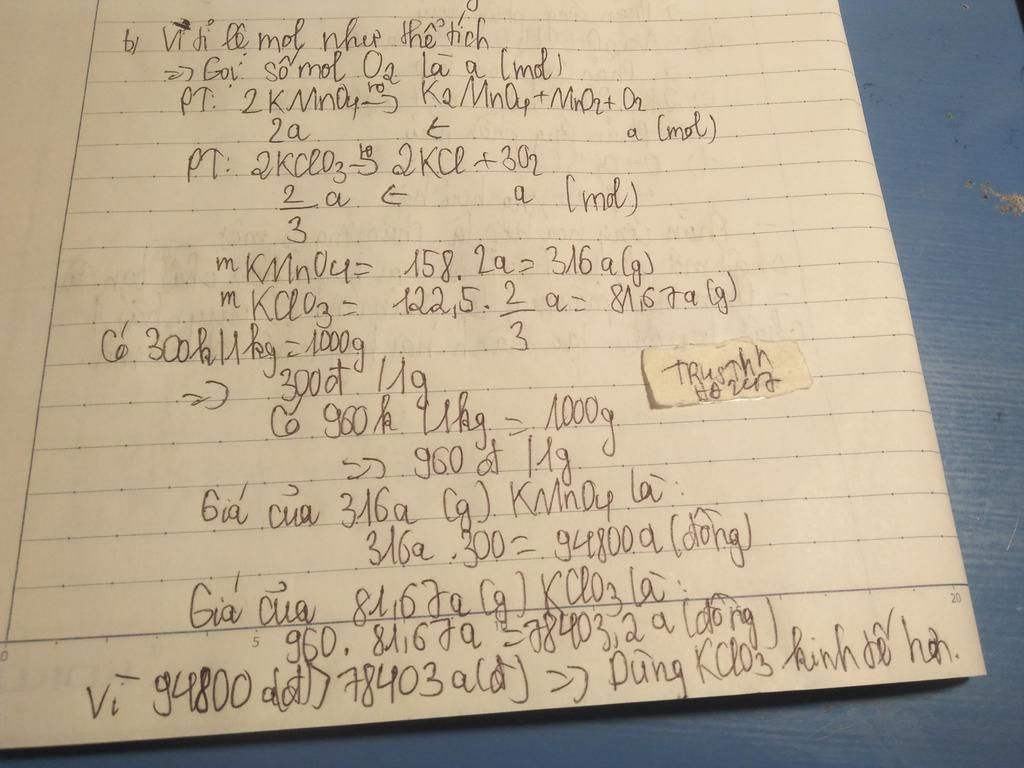 b, Vì tỉ lệ mol như thể tích
=> Gọi số mol O2 là a (mol)
PT: 2KMnO4 t°→ K2MnO4 + MnO2 + O2
2a ← a (mol)
PT: 2KClO3 t°→ 2KCl + 3O2
2/3 a ← a (mol)
mKMnO4 = 158. 2a = 316a (g)
mKClO3 = 122,5. 2/3 a = 81,67a (g)
Có 300k/1kg = 1000g
=> 300đ/1g
Có 960k/1kg = 1000g
=> 960đ/1g
Giá của 316a (g) KMnO4 là:
316a . 300 = 94800a (đồng)
Giá của 81,67a (g) KClO3 là:
960. 81,67a = 78403,2a (đồng)
Vì 94800a(đ) > 78403a(đ) => Dùng KClO3 kinh tế hơn.
5
20
0